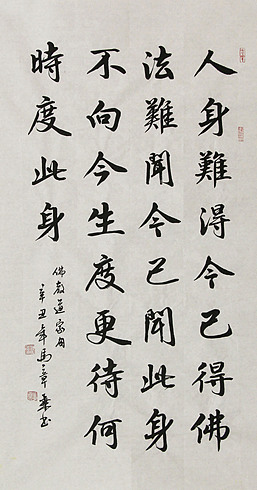 人身難得今已得佛
法難聞今已聞此身
不向今生度更待何
時度此身
佛教道家句
辛丑年馬三章乘書